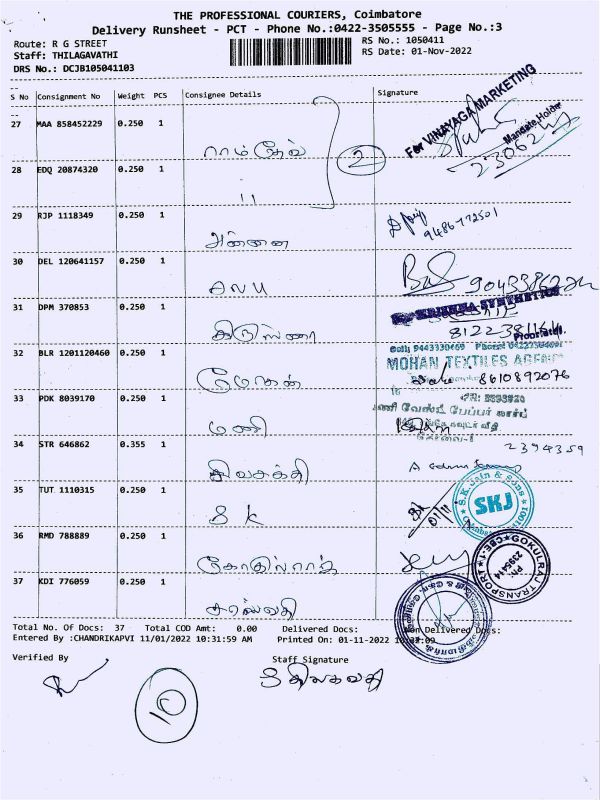 THE PROFESSIONAL COURIERS, Coimbatore
Delivery Runsheet - PCT - Phone No.:0422-3505555 - Page No.:3
Route: R G STREET
RS No.: 1050411
Staff: THILAGAVATHI
RS Date: 01-Nov-2022
DRS No.: DCJB105041103
S No Consignment No Weight PCS Consignee Details Signature
For VINAYAGA MARKETING
Mandate Holder
27 MAA 858452229 0.250 1 ராம்தேவ்
2
28 EDQ 20874320 0.250 1 "
29 RJP 1118349 0.250 1 அன்னை
9486772501
30 DEL 120641157 0.250 1
31 DPM 370853 0.250 1
KRISHNA SYNTHETICS
32 BLR 1201120460 0.250 1 மோகன்
MOHAN TEXTILES AGENCY
8610892076
33 PDK 8039170 0.250 1 மணி
34 STR 646862 0.355 1 சிவசக்தி
2394359
35 TUT 1110315 0.250 1 S K
S.K. Jain & Sons
SKJ
36 RMD 788889 0.250 1 கோகுல்ராஜ்
GOKULRAJ TRANSPORT
CBE-1
Ph: 2395414
37 KDI 776059 0.250 1
Total No. Of Docs: 37 Total COD Amt: 0.00 Delivered Docs: Non Delivered Docs:
Entered By :CHANDRIKAPVI 11/01/2022 10:31:59 AM Printed On: 01-11-2022
Verified By
Staff Signature
S திலகவதி
10